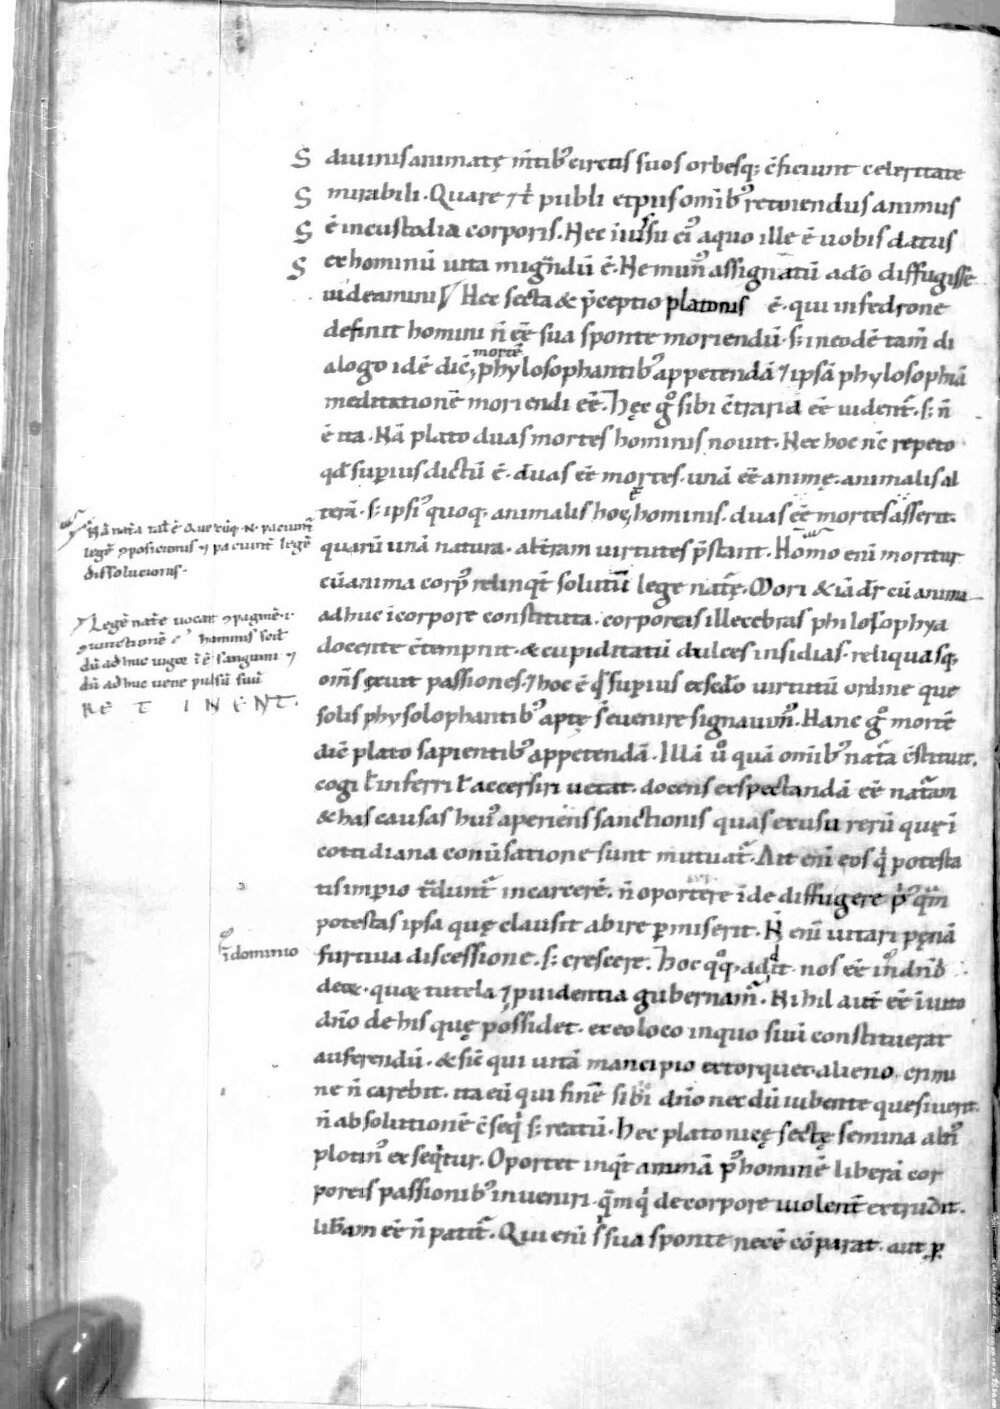 S diuinis animatę m̅tib᷒ circus suos orbesq; c̅ficiunt celeritate
S mirabili. Quare ⁊ t̅ publi et piis omib᷒ retinendus animus
S e̅ in custodia corporis. Nec iniussu ei᷒ a quo ille e̅ uobis datus
S ex hominu̅ uita migr̅du̅ e̅. Ne mun᷒ assignatu̅ a do̅ diffugisse
uideamini Hec secta & p̅ceptio platonis e̅. qui in fedrone
definit homini n̅ ee̅ sua sponte moriendu̅. s; in eode̅ tam̅ di
alogo ide̅ dic̅, morte̅ phylosophantib᷒ appetenda̅ ⁊ ipsa̅ phylosophia̅
meditatione̅ moriendi ee̅. Hęc g᷒ sibi c̅traria ee̅ uident᷑. s; n̅
e̅ ita. Na̅ plato duas mortes hominis nouit. Nec hoc nc̅ repeto
qd̅ superius dictu̅ e̅. duas ee̅ mortes. una̅ ee̅ animę. animalis al
tera̅. s; ipsi᷒ quoq; animalis hoc e̅ hominis. duas ee̅ mortes asserit.
quaru̅ una̅ natura. alt̅am uirtutes p̅stant. Homo eni̅ moritur
cu̅ anima corp᷒ relinqt̅ solutu̅ lege nat᷑ę. Mori & ia̅ dr̅ cu̅ anima
adhuc i̅ corpore constituta. corporeas illecebras philosophya
docente c̅tempnit. & cupiditatu̅ dulces insidias. reliquasq;
om̅s exuit passiones. ⁊ hoc e̅ q̅ superius ex sedo̅ uirtutu̅ ordine que
solis physolophantib᷒ aptę s̅ euenire signauim᷒. Hanc g᷒ morte̅
dic̅ plato sapientib᷒ appetenda̅. Illa̅ u᷒ qua̅ omib᷒ nat᷑a c̅stituit,
cogi l̅ inferri l̅ accersiri uetat. docens exspectanda̅ ee̅ nat᷑am
& has causas hui᷒ aperiens sanctionis quas ex usu reru̅ quę i̅
cottidiana conu̅satione sunt mutuat᷑. Ait eni̅ eos q̅ potesta
tis imperio t̅dunt᷑ in carcere̅. n̅ oportere i̅de diffugere p᷒ q̅m
potestas ipsa quę clausit abire p̱miserit. N̅ eni̅ uitari pęna̅
furtiua discessione. s; crescere. Hoc qq; adit. nos ee̅ in dn̅io
deoꝝ. quoꝝ tutela ⁊ puidentia gubernam᷑. Nihil aut̅ ee̅ inuito
dn̅o de his quę possidet. ex eo loco in quo suu̅ constituerat
auferendu̅. & sic̅ qui uita̅ mancipio extorquet alieno. crimi
ne n̅ carebit. ita eu̅ qui fine̅ sibi dn̅o nec du̅ iubente quesiuerit.
n̅ absolutione̅ c̅seq̅ s; reatu̅. Hec platonicę sectę semina alti᷒
plotin᷒ exseq̅tur. Oportet inqt̅ anima̅ p᷒ homine̅ libera̅ cor
poreis passionib᷒ inueniri. q̅m q̅ de corpore uiolent᷑ extrudit.
lib̅am ee̅ n̅ patit᷑. Qui eni̅ s̅ sua sponte nece̅ co̅parat. aut p̱
Na̅ nat᷑a
lege̅ ꝯposicionis ⁊ paciunt᷑ lege̅
dissolucionis.
Lege̅ nat᷑e uocat ꝯpagine̅ .i.
ꝯiunctione̅ hominis
du̅ adhuc uigor i̅ e̅ sanguini ⁊
du̅ adhuc uene pulsu̅ suu̅
RETINENT.
i̅ dominio